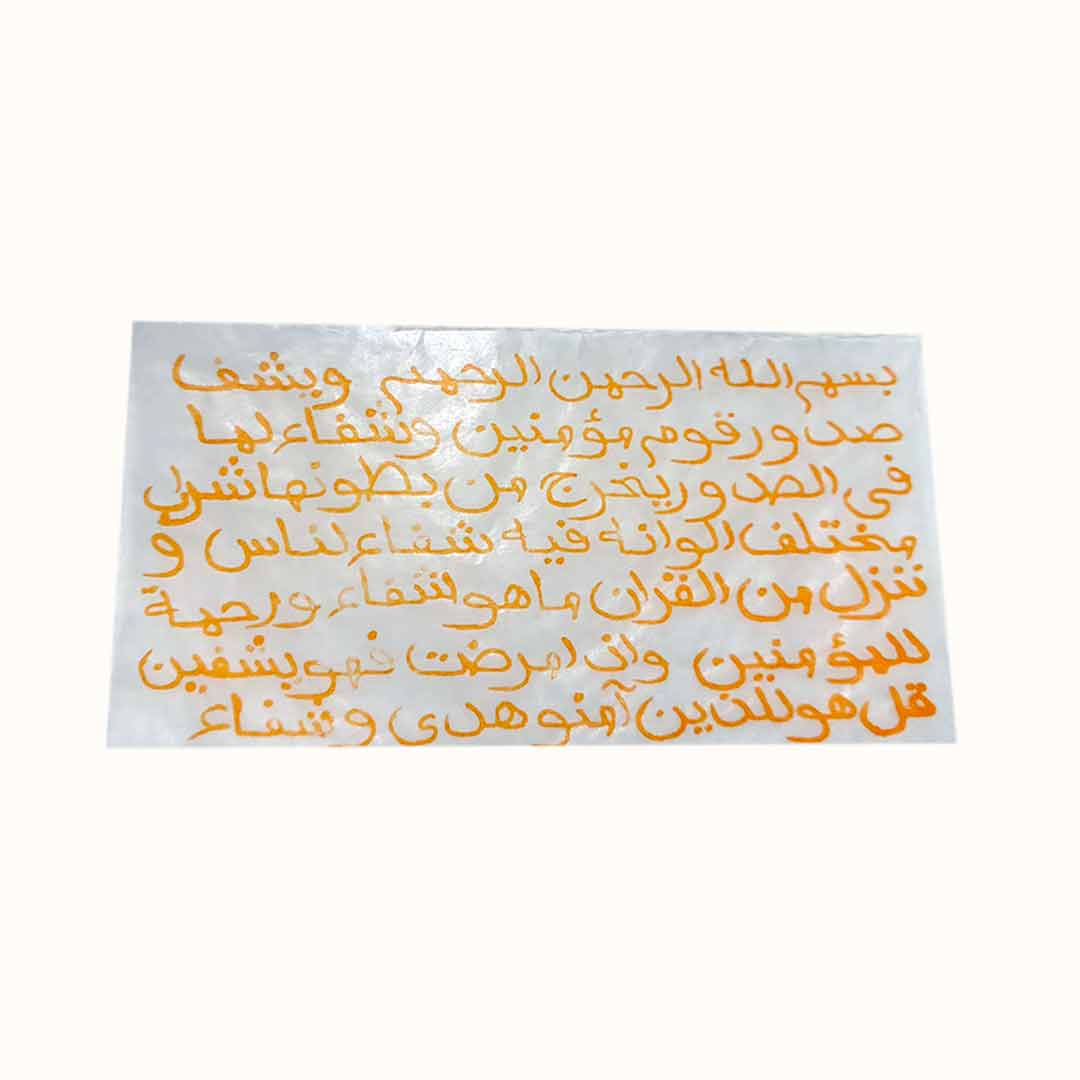 بسم الله الرحمن الرحيم ويشف
صدور قوم مؤمنين وشفاء لما
فى الصدور يخرج من بطونها شراب
مختلف الوانه فيه شفاء لناس و
ننزل من القران ماهو شفاء ورحمة
للمؤمنين واذ امرضت فهو يشفين
قل هو للذين آمنو هدى وشفاء